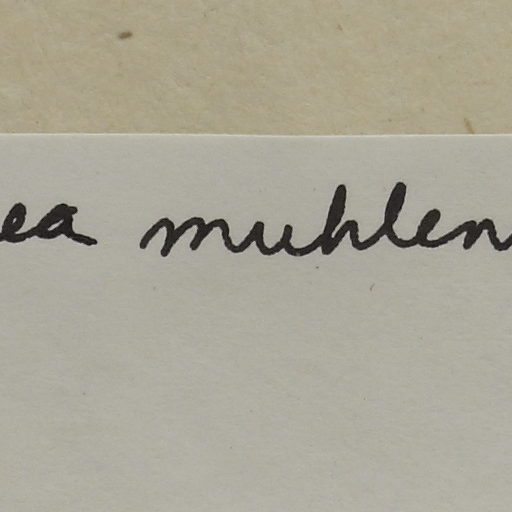 ea muhlen